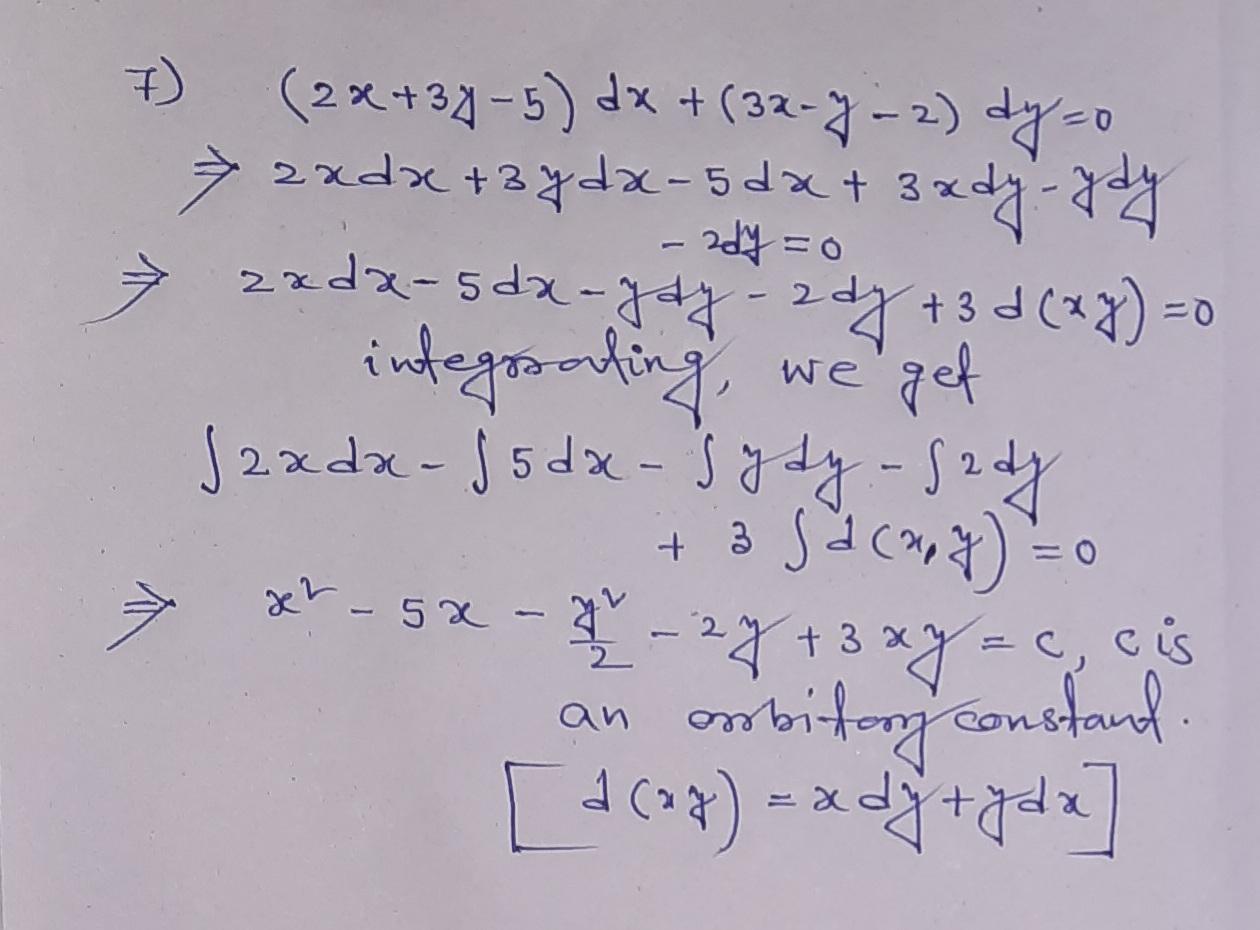 7) (2x+3y-5) dx + (3x-y-2) dy=0
⇒ 2xdx + 3ydx - 5dx + 3xdy - ydy
- 2dy = 0
⇒ 2xdx - 5dx - ydy - 2dy + 3d(xy) = 0
integrating, we get
∫2xdx - ∫5dx - ∫ydy - ∫2dy
+ 3∫d(x,y) = 0
⇒ x² - 5x - y²/2 - 2y + 3xy = c, c is
an arbitary constant.
[d(xy) = xdy + ydx]